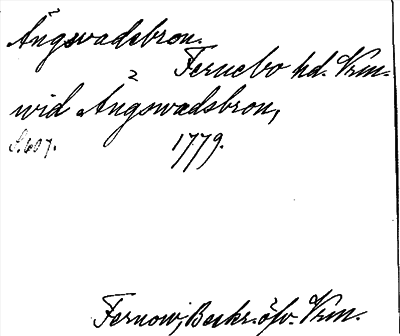 Ängsvadsbron.
Fernebo hd. Vrm.
wid Ängswadsbron,
S. 607. 1779.
Fernow, Beskr. öfv. Vrm.